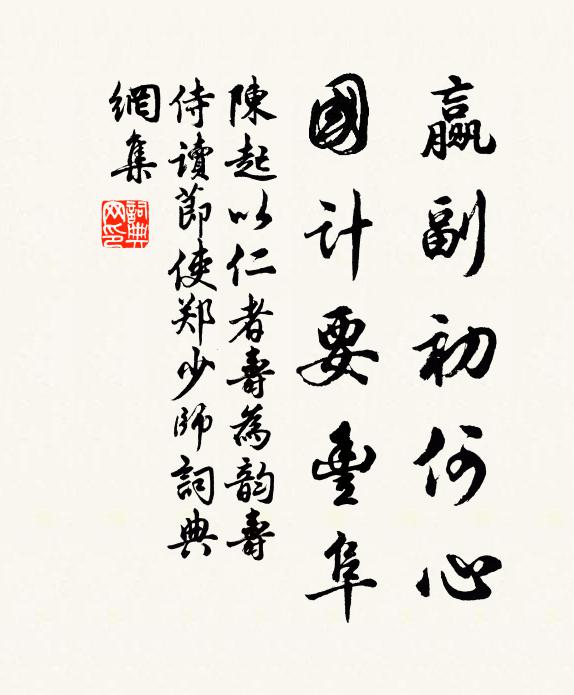 赢副初何心
國计要豊阜
陳起以仁者壽為韵壽
侍讀節使郑少師詞典
網集
詞典
网印